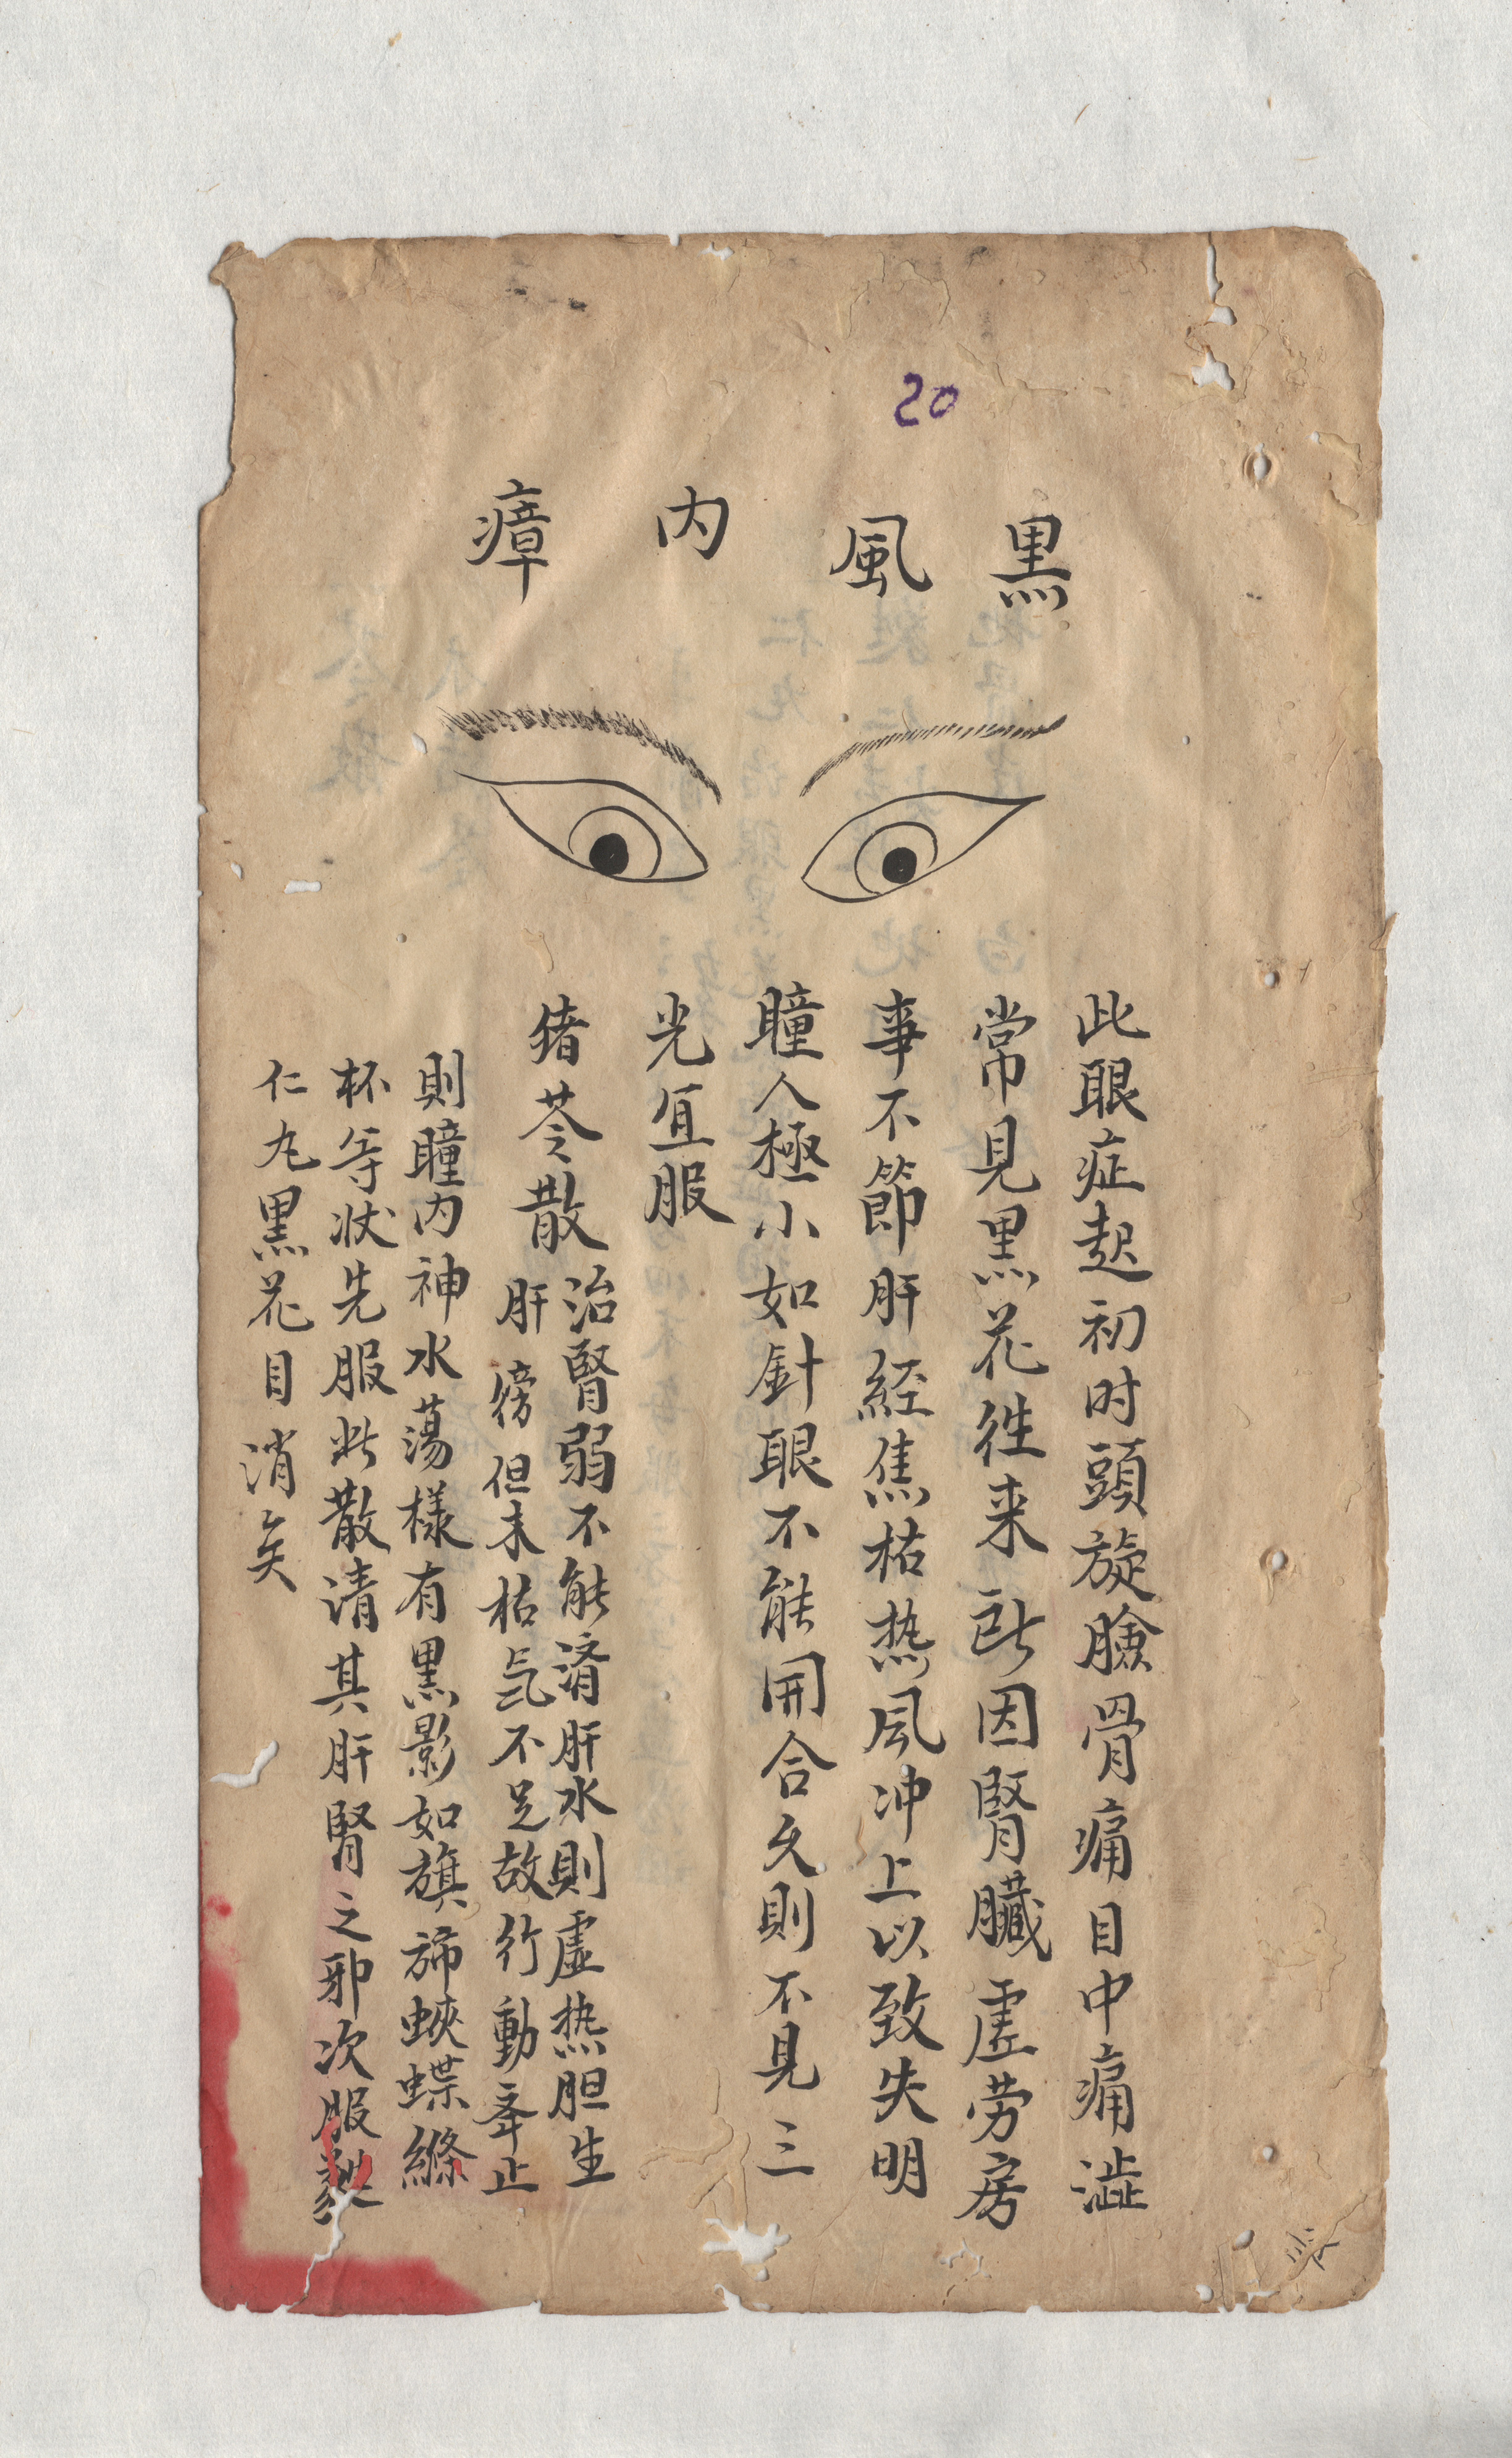 20
黒風内瘴
此眼症起初时頭旋臉骨痛目中痛澁
常見黒花徃来此因腎臟虛劳房
事不節肝経焦枯热風冲上以致失明
瞳人極小如針眼不能開合久則不見三
光宜服
猪苓散
治腎弱不能濟肝水則虛热胆生
肝傍但未枯氣不足故行動
止
則瞳内神水蕩樣有黒影如旗旆蛺蝶縧
杯等状先服此散清其肝腎之邪次服蕤
仁丸黒花目消矣